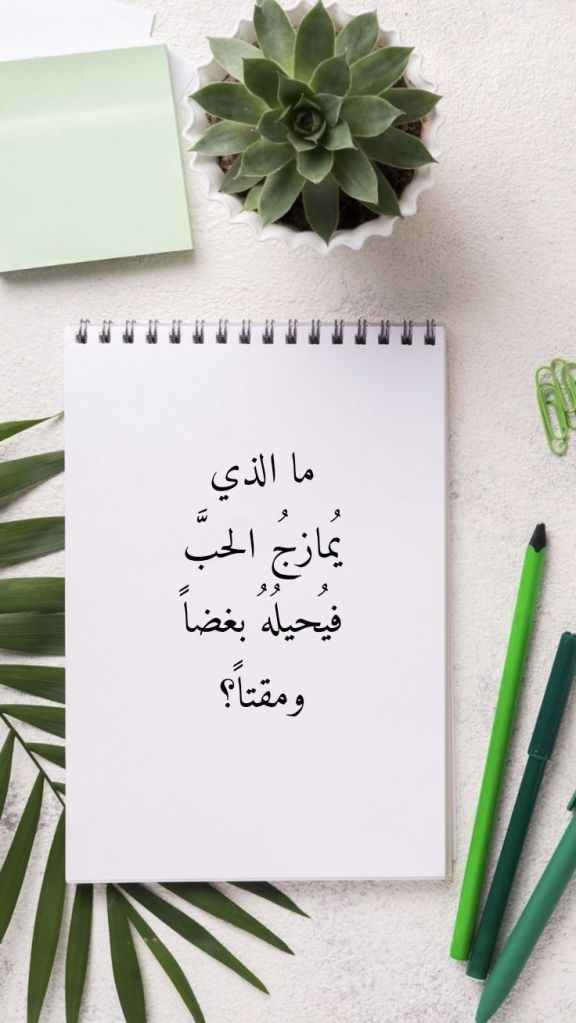 ما الذي
يُمازجُ الحبَّ
فيُحيلُهُ بغضاً
ومقتاً؟